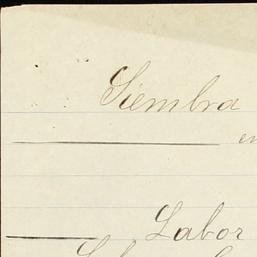 Siembra
en
Labor